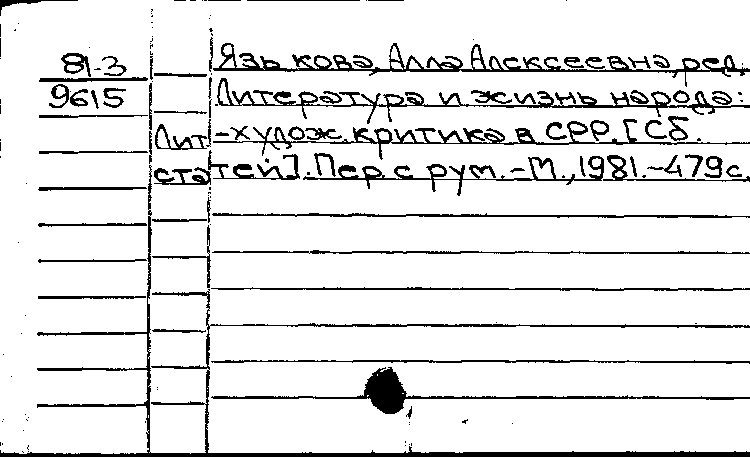 81-3 Языкова, Алла Алексеевна, ред.
9615 Литература и жизнь народа:
Лит-худож. критика в СРР. [Сб.
статей]. Пер. с рум. - М., 1981. - 479с.